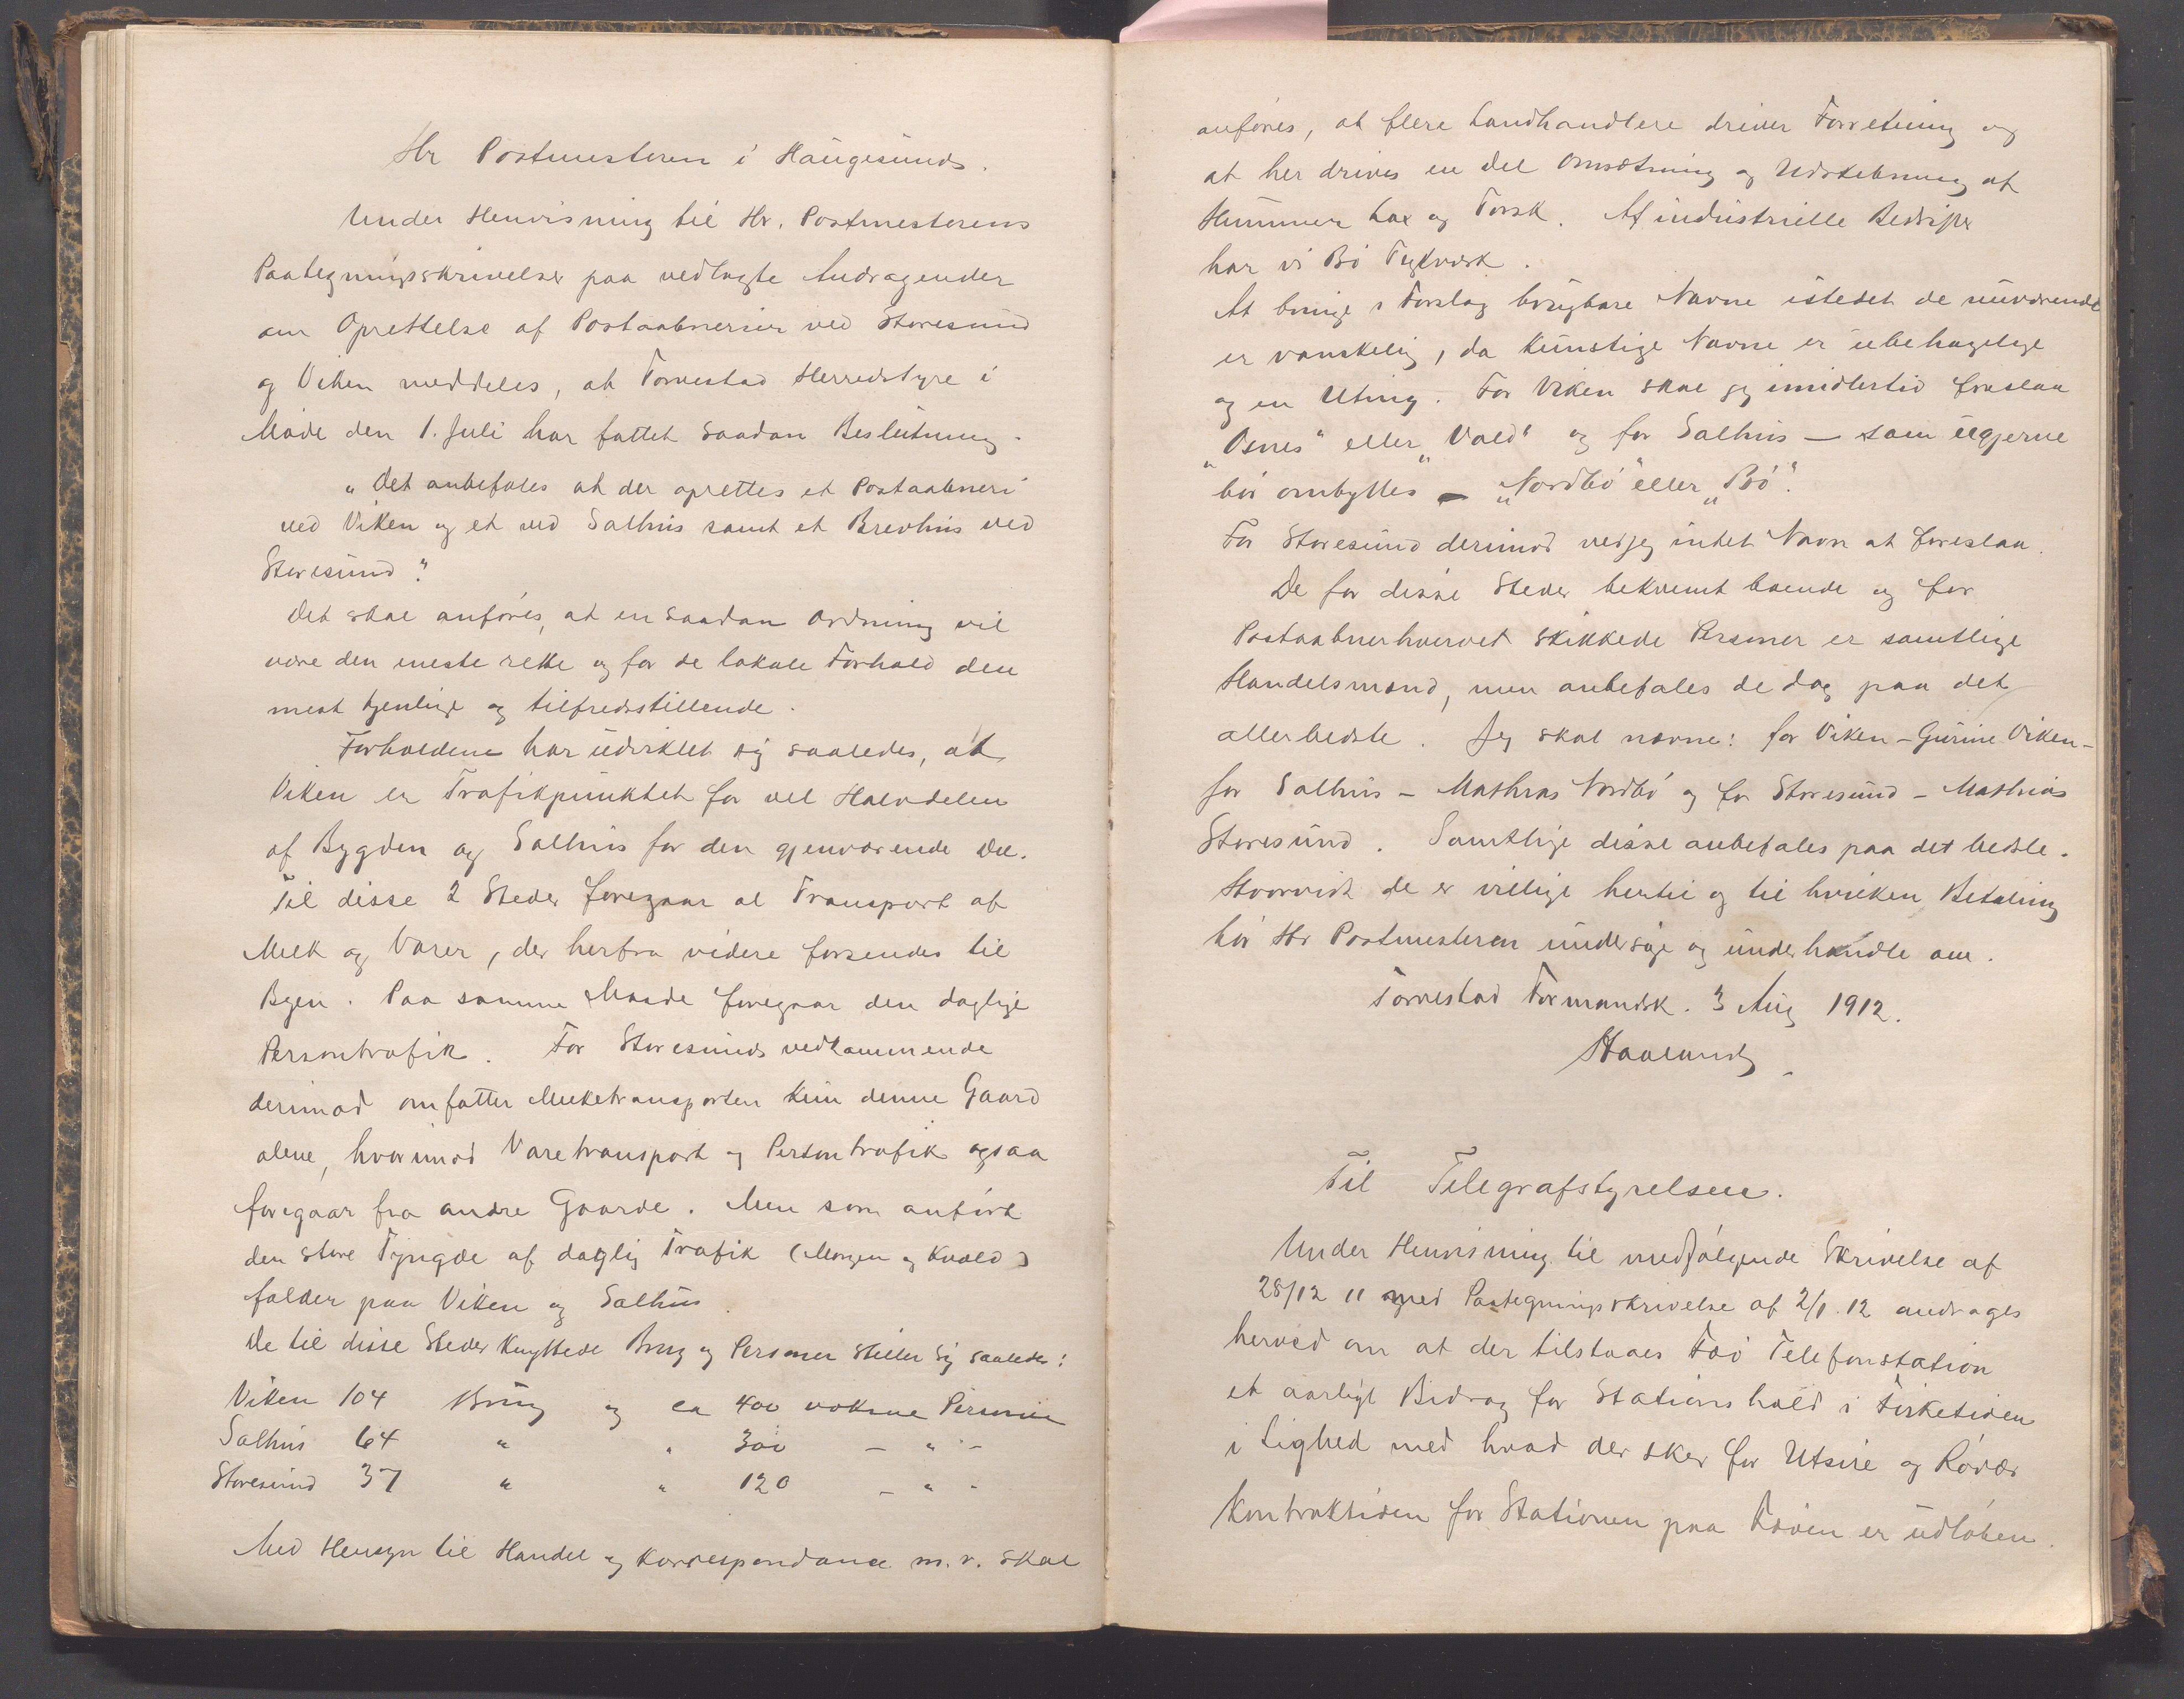 Hr Postmesteren i Haugesunds.
Under Henvisning til Hr. Postmesterens
Paategningsskrivelser paa vedlagte Andragender
om Oprettelse af Postaabnerier ved Storesund
og Viken meddeles, at Torvestad Herredstyre i
Møde den 1. Juli har fattet saadan Beslutning.
„Det anbefales at der oprettes et Postaabneri
ved Viken og et ved Salhus samt et Brevhus ved
Storesund".
Det skal anføres, at en saadan Ordning vil
være den eneste rette og for de lokale Forhold den
mest tjenlige og tilfredsstillende.
Forholdene har udviklet sig saaledes, at
Viken er Trafikpunktet for vel Halvdelen
af Bygden og Salhus for den gjenværende Del.
Til disse 2 Steder foregaar al Transport af
Melk og Varer, der herfra videre forsendes til
Byen. Paa samme Maade foregaar den daglige
Persontrafik. For Storesunds vedkommende
derimod omfatter Melketransporten kun denne Gaard
alene, hvorimod Varetransport og Persontrafik ogsaa
foregaar fra andre Gaarde. Men som anført
den store Tyngde af daglig Trafik (Morgen og Kvæld)
falder paa Viken og Salhus.
De til disse Steder knyttede Brug og Personer stiller sig saaledes:
Viken 104 Brug og ca 400 voksne Personer
Salhus 64 " " 300 - " -
Storesund 37 " " 120 - " -
Med Hensyn til Handel og Korrespondance m.v. skal
anføres, at flere Landhandlere driver Forretning og
at her drives en Del Omsætning og Udskibning af
Hummer Lax og Torsk. Af industrielle Bedrifter
har vi Bø Teglværk.
At bringe i Forslag brugbare Navne istedet de nuværende
er vanskelig, da kunstige Navne er ubehagelige
og en Uting. For Viken skal jeg imidlertid foreslaa
„Osnes" eller „Vald" og for Salhus — som ugjerne
bør ombyttes — „Nordbø" eller „Bø".
For Storesund derimod ved jeg intet Navn at foreslaa.
De for disse Steder bekvemt boende og for
Postaabnerhvervet skikkede Personer er samtlige
Handelsmænd, men anbefales de dog paa det
allerbedste. Jeg skal nævne: for Viken - Gurine Viken -
for Salhus - Mathias Nordbø og for Storesund - Mathias
Storesund. Samtlige disse anbefales paa det bedste.
Hvorvidt de er villige hertil og til hvilken Betaling
bør Hr Postmesteren undersøge og underhandle om.
Torvestad Formandsk. 3 Aug 1912.
Til Telegrafstyrelsen.
Under Henvisning til medfølgende Skrivelse af
28/12 11 med Paategningsskrivelse af 2/1. 12 andrages
herved om at der tilstaaes Fæø Telefonstation
et aarligt Bidrag for Stationshold i Fisketiden
i Lighed med hvad der sker for Utsire og Røvær
Kontraktiden for Stationen paa Fæøen er udløben.